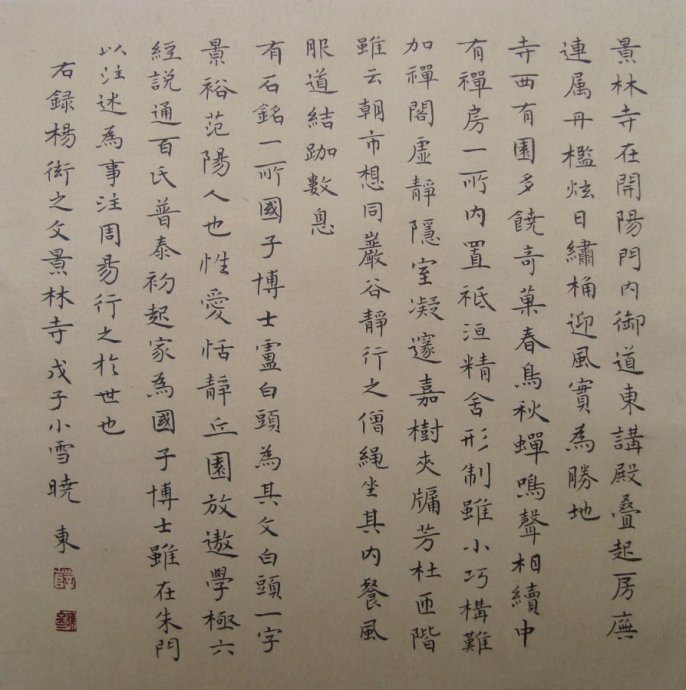 景林寺在開陽門内御道東講殿疊起房廡
連属丹檻炫日繡桷迎風實為勝地
寺西有園多饒奇菓春鳥秋蟬鳴聲相續中
有禪房一所内置祗洹精舍形制雖小巧構難
加禪閣虛靜隱室凝邃嘉樹夾牖芳杜匝階
雖云朝市想同巖谷靜行之僧繩坐其内餐風
服道結跏數息
有石銘一所國子博士盧白頭為其文白頭一字
景裕范陽人也性愛恬靜丘園放遨學極六
經說通百氏普泰初起家為國子博士雖在朱門
以注述為事注周易行之於世也
右録楊衒之文景林寺戊子小雪曉東